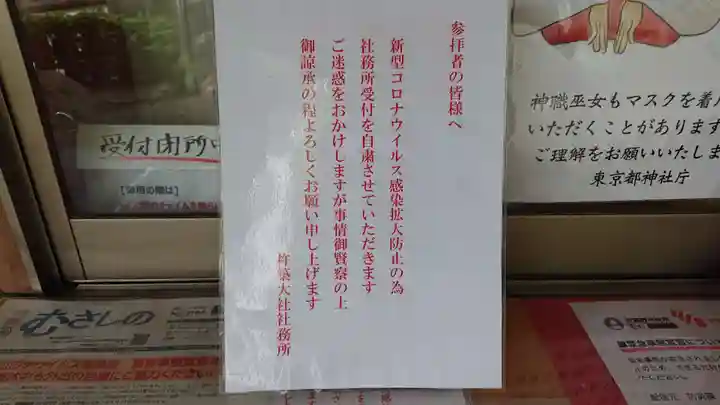 参拝者の皆様へ
新型コロナウイルス感染拡大防止の為
社務所受付を自粛させていただきます
ご迷惑をおかけしますが事情御賢察の上
御諒承の程よろしくお願い申し上げます
杵築大社社務所
神職巫女もマスクを着用
いただくことがあります
ご理解をお願いいたしま
東京都神社庁
受付閉所中
むさしの